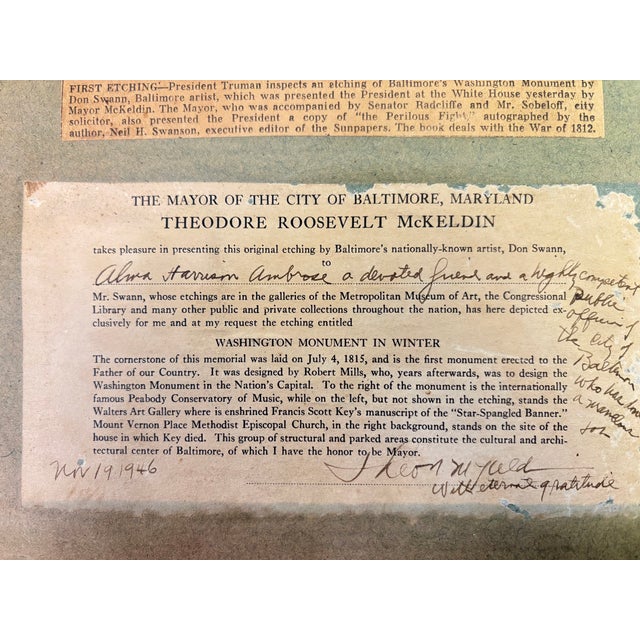 FIRST ETCHING—President Truman inspects an etching of Baltimore's Washington Monument by
Don Swann, Baltimore artist, which was presented the President at the White House yesterday by
Mayor McKeldin. The Mayor, who was accompanied by Senator Radcliffe and Mr. Sobeloff, city
solicitor, also presented the President a copy of "the Perilous Fight," autographed by the
author, Neil H. Swanson, executive editor of the Sunpapers. The book deals with the War of 1812.
THE MAYOR OF THE CITY OF BALTIMORE, MARYLAND
THEODORE ROOSEVELT McKELDIN
takes pleasure in presenting this original etching by Baltimore's nationally-known artist, Don Swann,
to
Alma Harrison Ambrose a devoted friend and a highly competent
public
officer of
the city of
Baltimore
who has
a
job
Mr. Swann, whose etchings are in the galleries of the Metropolitan Museum of Art, the Congressional
Library and many other public and private collections throughout the nation, has here depicted ex-
clusively for me and at my request the etching entitled
WASHINGTON MONUMENT IN WINTER
The cornerstone of this memorial was laid on July 4, 1815, and is the first monument erected to the
Father of our Country. It was designed by Robert Mills, who, years afterwards, was to design the
Washington Monument in the Nation's Capital. To the right of the monument is the internationally
famous Peabody Conservatory of Music, while on the left, but not shown in the etching, stands the
Walters Art Gallery where is enshrined Francis Scott Key's manuscript of the "Star-Spangled Banner."
Mount Vernon Place Methodist Episcopal Church, in the right background, stands on the site of the
house in which Key died. This group of structural and parked areas constitute the cultural and archi-
tectural center of Baltimore, of which I have the honor to be Mayor.
Nov 19 1946
Theo R McKeldin
With eternal gratitude